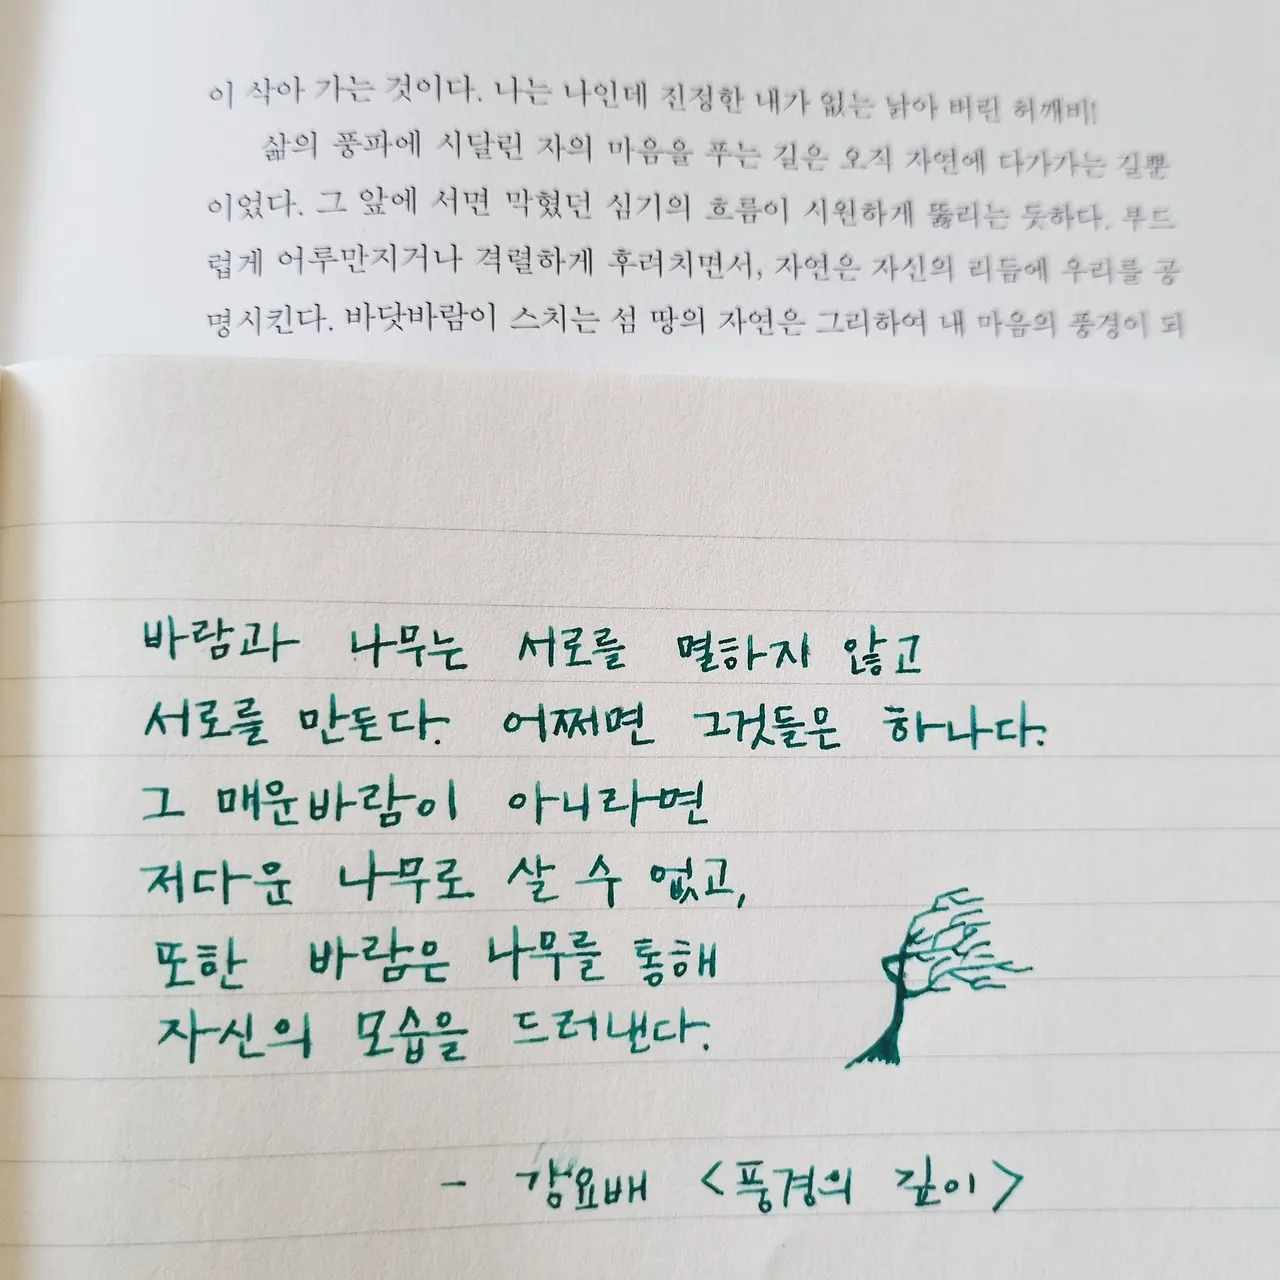 이 삭아 가는 것이다. 나는 나인데 진정한 내가 없는 낡아 버린 허깨비!
삶의 풍파에 시달린 자의 마음을 푸는 길은 오직 자연에 다가가는 길뿐
이었다. 그 앞에 서면 막혔던 심기의 흐름이 시원하게 뚫리는 듯하다. 부드
럽게 어루만지거나 격렬하게 후려치면서, 자연은 자신의 리듬에 우리를 공
명시킨다. 바닷바람이 스치는 섬 땅의 자연은 그리하여 내 마음의 풍경이 되
바람과 나무는 서로를 멸하지 않고
서로를 만든다. 어쩌면 그것들은 하나다.
그 매운바람이 아니라면
저다운 나무로 살 수 없고,
또한 바람은 나무를 통해
자신의 모습을 드러낸다.
- 강요배 <풍경의 깊이>